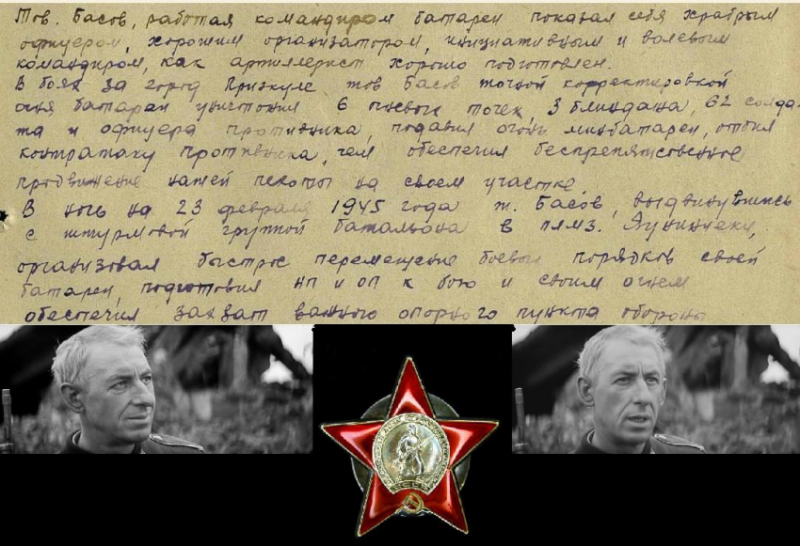 Тов. Басов, работая командиром батареи показал себя храбрым
офицером, хорошим организатором, инициативным и волевым
командиром, как артиллерист хорошо подготовлен.
В боях за город Приэкуле тов Басов точной корректировкой
огня батареи уничтожил 6 огневых точек, 3 блиндажа, 62 солда-
та и офицера противника, подавил огонь минбатареи, отбил
контратаку противника, чем обеспечил беспрепятственное
продвижение нашей пехоты на своем участке
В ночь на 23 февраля 1945 года т. Басов, выдвинувшись
с штурмовой группой батальона в
организовал быстрое перемещение боевых порядков своей
батареи, подготовил НП и ОП к бою и своим огнем
обеспечил захват важного опорного пункта обороны
СССР